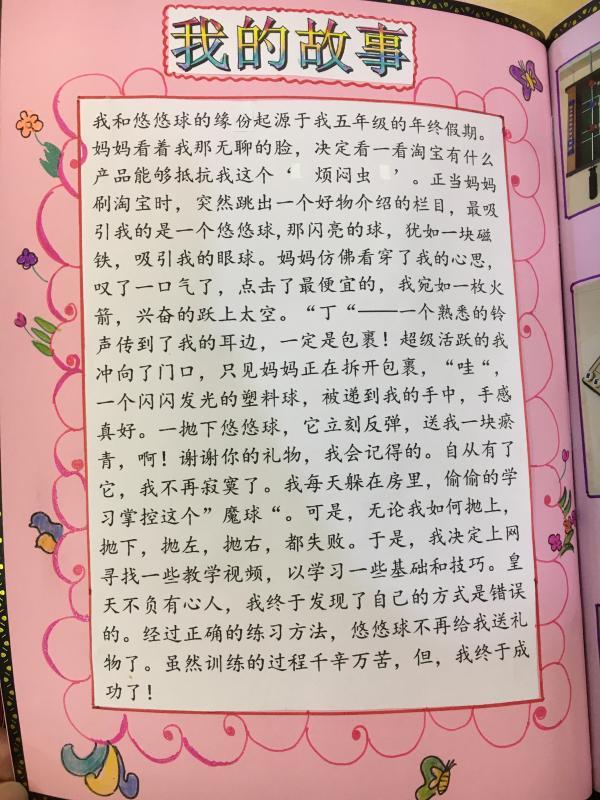 我的故事
我和悠悠球的缘份起源于我五年级的年终假期。
妈妈看着我那无聊的脸，决定看一看淘宝有什么
产品能够抵抗我这个‘ 烦闷虫 ’。正当妈妈
刷淘宝时，突然跳出一个好物介绍的栏目，最吸
引我的是一个悠悠球,那闪亮的球，犹如一块磁
铁，吸引我的眼球。妈妈仿佛看穿了我的心思，
叹了一口气了，点击了最便宜的，我宛如一枚火
箭，兴奋的跃上太空。“丁“——一个熟悉的铃
声传到了我的耳边，一定是包裹！超级活跃的我
冲向了门口，只见妈妈正在拆开包裹，“哇“，
一个闪闪发光的塑料球，被递到我的手中，手感
真好。一抛下悠悠球，它立刻反弹，送我一块瘀
青，啊！谢谢你的礼物，我会记得的。自从有了
它，我不再寂寞了。我每天躲在房里，偷偷的学
习掌控这个”魔球“。可是，无论我如何抛上，
抛下，抛左，抛右，都失败。于是，我决定上网
寻找一些教学视频，以学习一些基础和技巧。皇
天不负有心人，我终于发现了自己的方式是错误
的。经过正确的练习方法，悠悠球不再给我送礼
物了。虽然训练的过程千辛万苦，但，我终于成
功了！